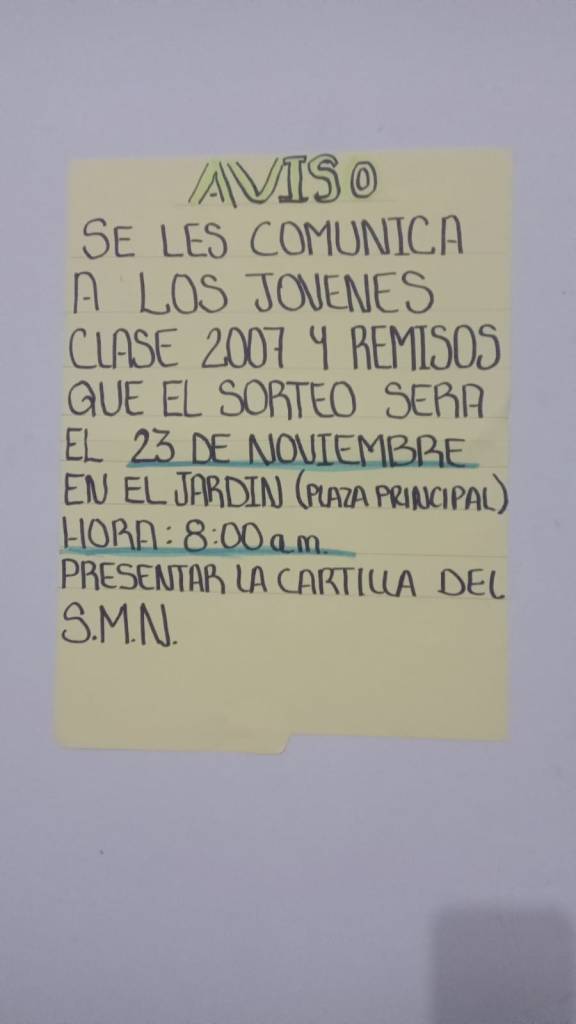 AVISO
SE LES COMUNICA
A LOS JOVENES
CLASE 2007 Y REMISOS
QUE EL SORTEO SERA
EL 23 DE NOVIEMBRE
EN EL JARDIN (PLAZA PRINCIPAL)
HORA: 8:00 a.m.
PRESENTAR LA CARTILLA DEL
S.M.N.